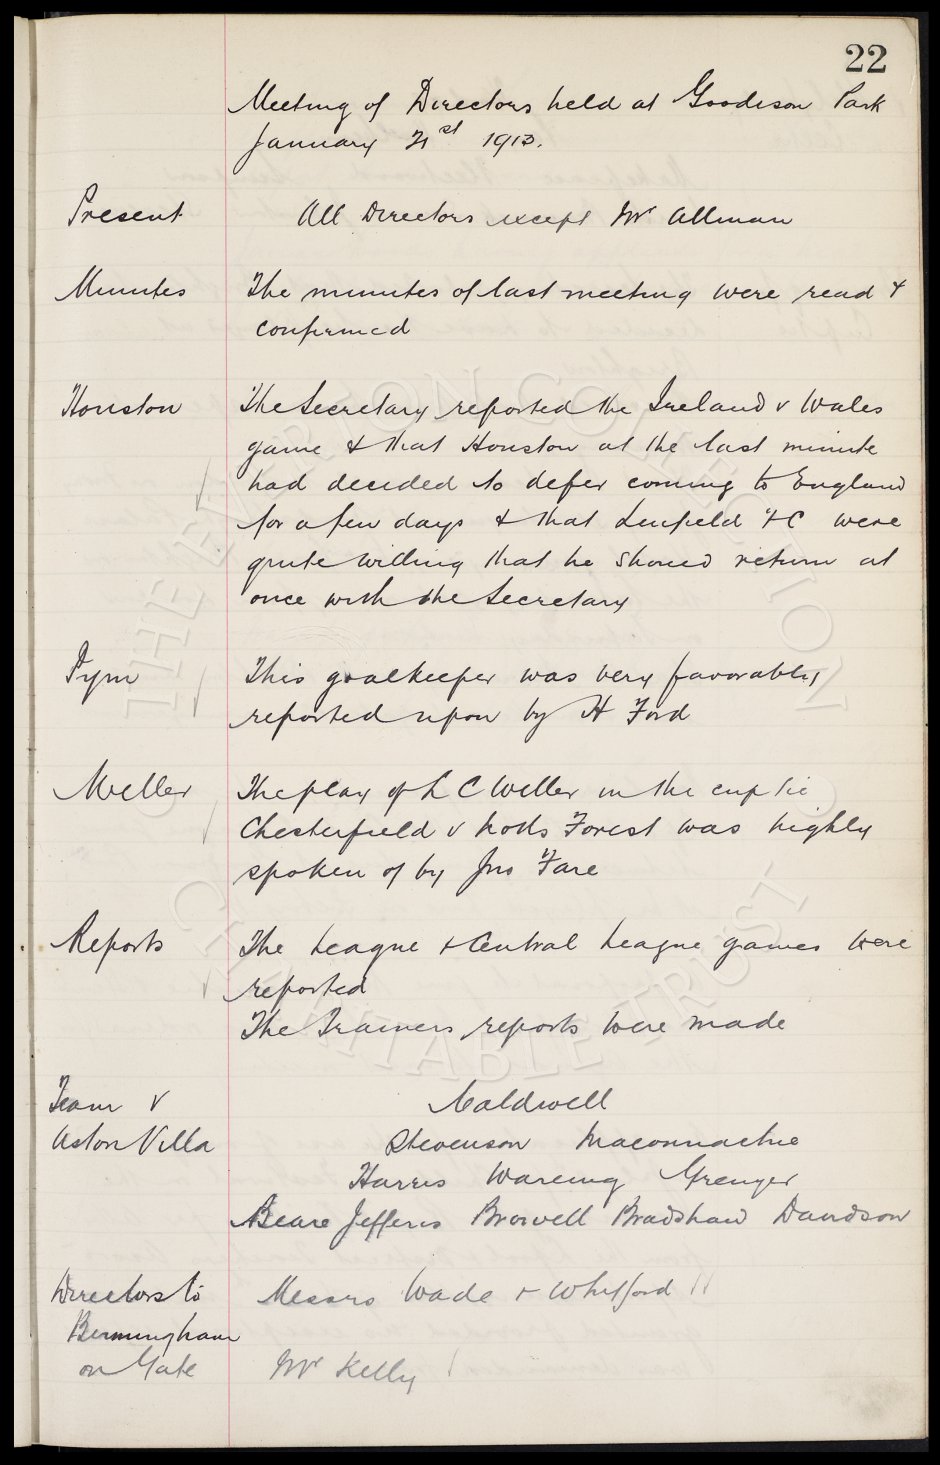 22
Meeting of Directors held at Goodison Park
January 21st 1913.
Present All Directors except Mr Allman
Minutes The minutes of last meeting were read &
confirmed
Houston The Secretary reported the Ireland v Wales
game & that Houston at the last minute
had decided to defer coming to England
for a few days & that Linfield FC were
quite willing that he should return at
once with the Secretary
Pym This goalkeeper was very favorably
reported upon by H Ford
Weller The play of L C Weller in the cup tie
Chesterfield v Notts Forest was highly
spoken of by Jno Fare
Reports The League & Central League games were
reported
The Trainers reports were made
Team v Caldwell
Aston Villa Stevenson Maconnachie
Harris Wareing Grenyer
Beare Jefferis Browell Bradshaw Davidson
Directors to Messrs Wade & Whitford
Birmingham
on Gate Mr Kelly
THE EVERTON COLLECTION
CHARITABLE TRUST